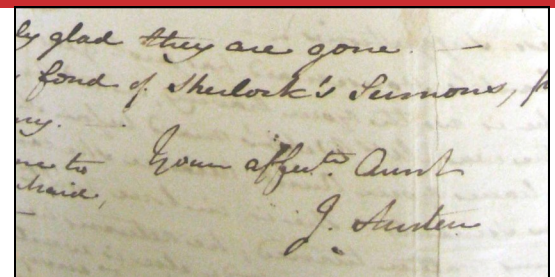 ly glad they are gone. —
fond of Sherlock's Sermons,
ny.
me to Your affec.te Aunt
J. Austen